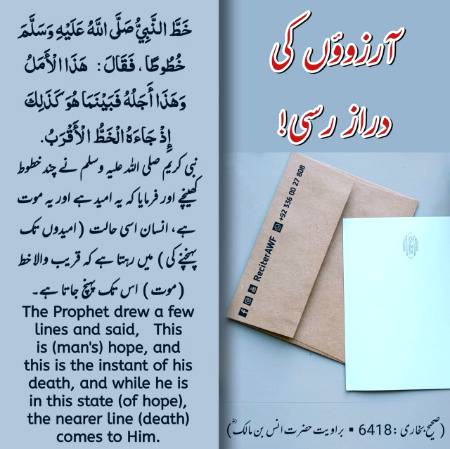 خَطَّ النَّبِيُّ صَلَّى اللَّهُ عَلَيْهِ وَسَلَّمَ
خُطُوطًا، فَقَالَ: هَذَا الْأَمَلُ
وَهَذَا أَجَلُهُ فَبَيْنَمَا هُوَ كَذَلِكَ
إِذْ جَاءَهُ الْخَطُّ الْأَقْرَبُ.
نبی کریم صلی اللہ علیہ وسلم نے چند خطوط
کھینچے اور فرمایا کہ یہ امید ہے اور یہ موت
ہے، انسان اسی حالت (امیدوں تک
پہنچنے کی) میں رہتا ہے کہ قریب والا خط
(موت) اس تک پہنچ جاتا ہے۔
The Prophet drew a few
lines and said, This
is (man's) hope, and
this is the instant of his
death, and while he is
in this state (of hope),
the nearer line (death)
comes to Him.
آرزوؤں کی
دراز رسی!
ReciterAWF +92 336 00 27 808
(صحیح بخاری: 6418 ▪ براویت حضرت انس بن مالکؓ)